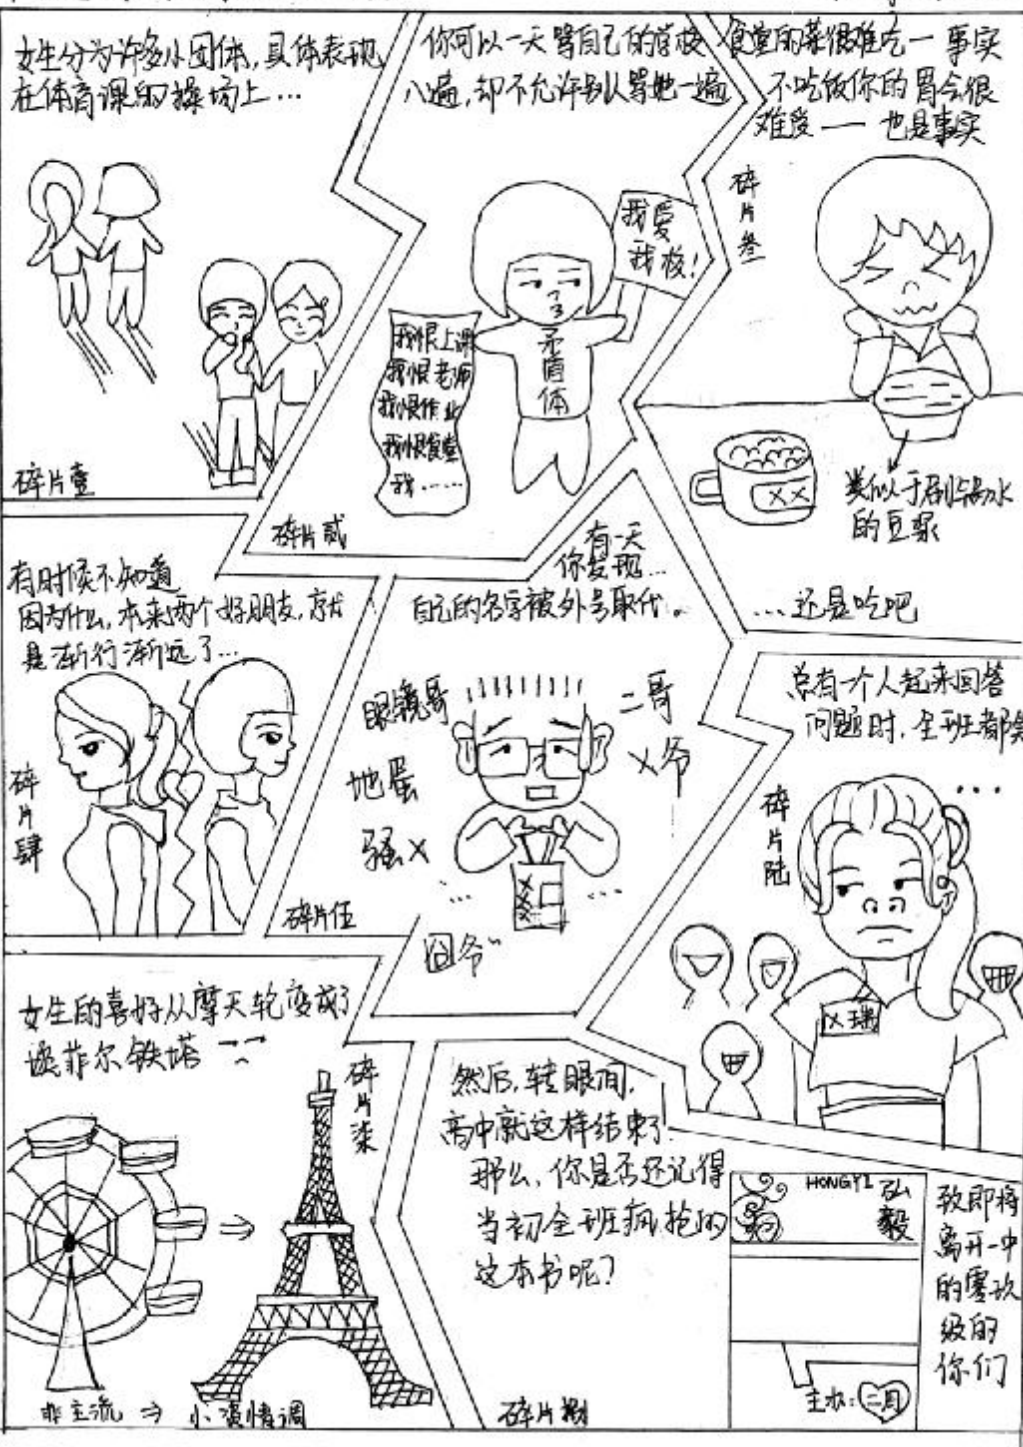 女生分为许多小团体,具体表现
在体育课的操场上...
碎片壹
你可以一天骂自己的学校
八遍,却不允许别人骂她一遍
我爱
我校!
矛盾体
我恨上课
我恨老师
我恨作业
我恨食堂
我......
碎片贰
食堂的菜很难吃一事实
不吃饭你的胃会很
难受——也是事实
碎片叁
XX
类似于刷锅水
的豆浆
...还是吃吧
有时候不知道
因为什么,本来两个好朋友,就
是渐行渐远了...
碎片肆
有一天
你发现...
自己的名字被外号取代。
眼镜哥
地蛋
骚X
...
二哥
X爷
...
囧爷"
碎片伍
总有一个人起来回答
问题时,全班都笑
...
碎片陆
X瑞
女生的喜好从摩天轮变成了
埃菲尔铁塔
碎片柒
非主流 => 小资情调
然后,转眼间,
高中就这样结束了.
那么,你是否还记得
当初全班疯抢的
这本书呢?
碎片捌
HONGYI 弘
毅
主办:二月
致即将
离开一中
的零玖
级的
你们